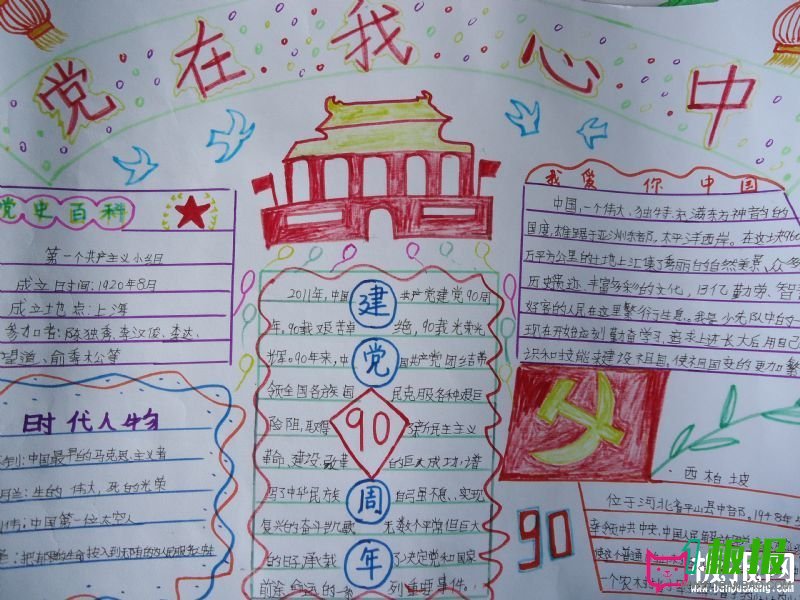 党在我心中
党史百科
第一个共产主义小组
成立日时间:1920年8月
成立地点:上海
参加者:陈独秀、李汉俊、李达、
望道、俞秀松等
时代人物
中国最早的马克思主义者
生的伟大,死的光荣
中国第一位太空人
2011年,中国建共产党建党90周
年,90载艰苦卓绝,90载光荣光
辉。90年来,中党国共产党团结带
领全国各族人民克服各种艰巨
险阻,取得90新民主主义
革命、建设、改革的巨大成功,谱
写了中华民族周自强不息、实现
复兴的奋斗凯歌。无数个平常但巨大
的日子,承载年了决定党和国家
前途命运的一系列重要事件。
我爱你中国
中国,一个伟大、独特、充满东方神奇的
国度,雄踞于亚洲东部,太平洋西岸。在这块960
万平方公里的土地上汇集了秀丽的自然美景、众多
历史遗迹、丰富多彩的文化,13亿勤学、智
好客的人民在这里繁衍生息。我是小先队中的一
现在开始应刻勤奋学习,追求上进长大后用自己
识和技能来建设祖国。使祖国变的更加繁
西柏坡
位于河北省平山县中部。1948年
中共中央、中国人民解
使这个普通
一个农村
90
板报网
www.banbaowang.com